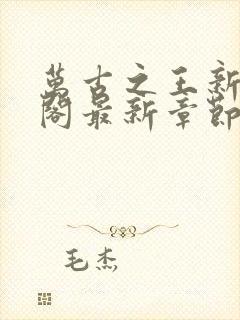 萬古之王新
閣最新章節
毛杰